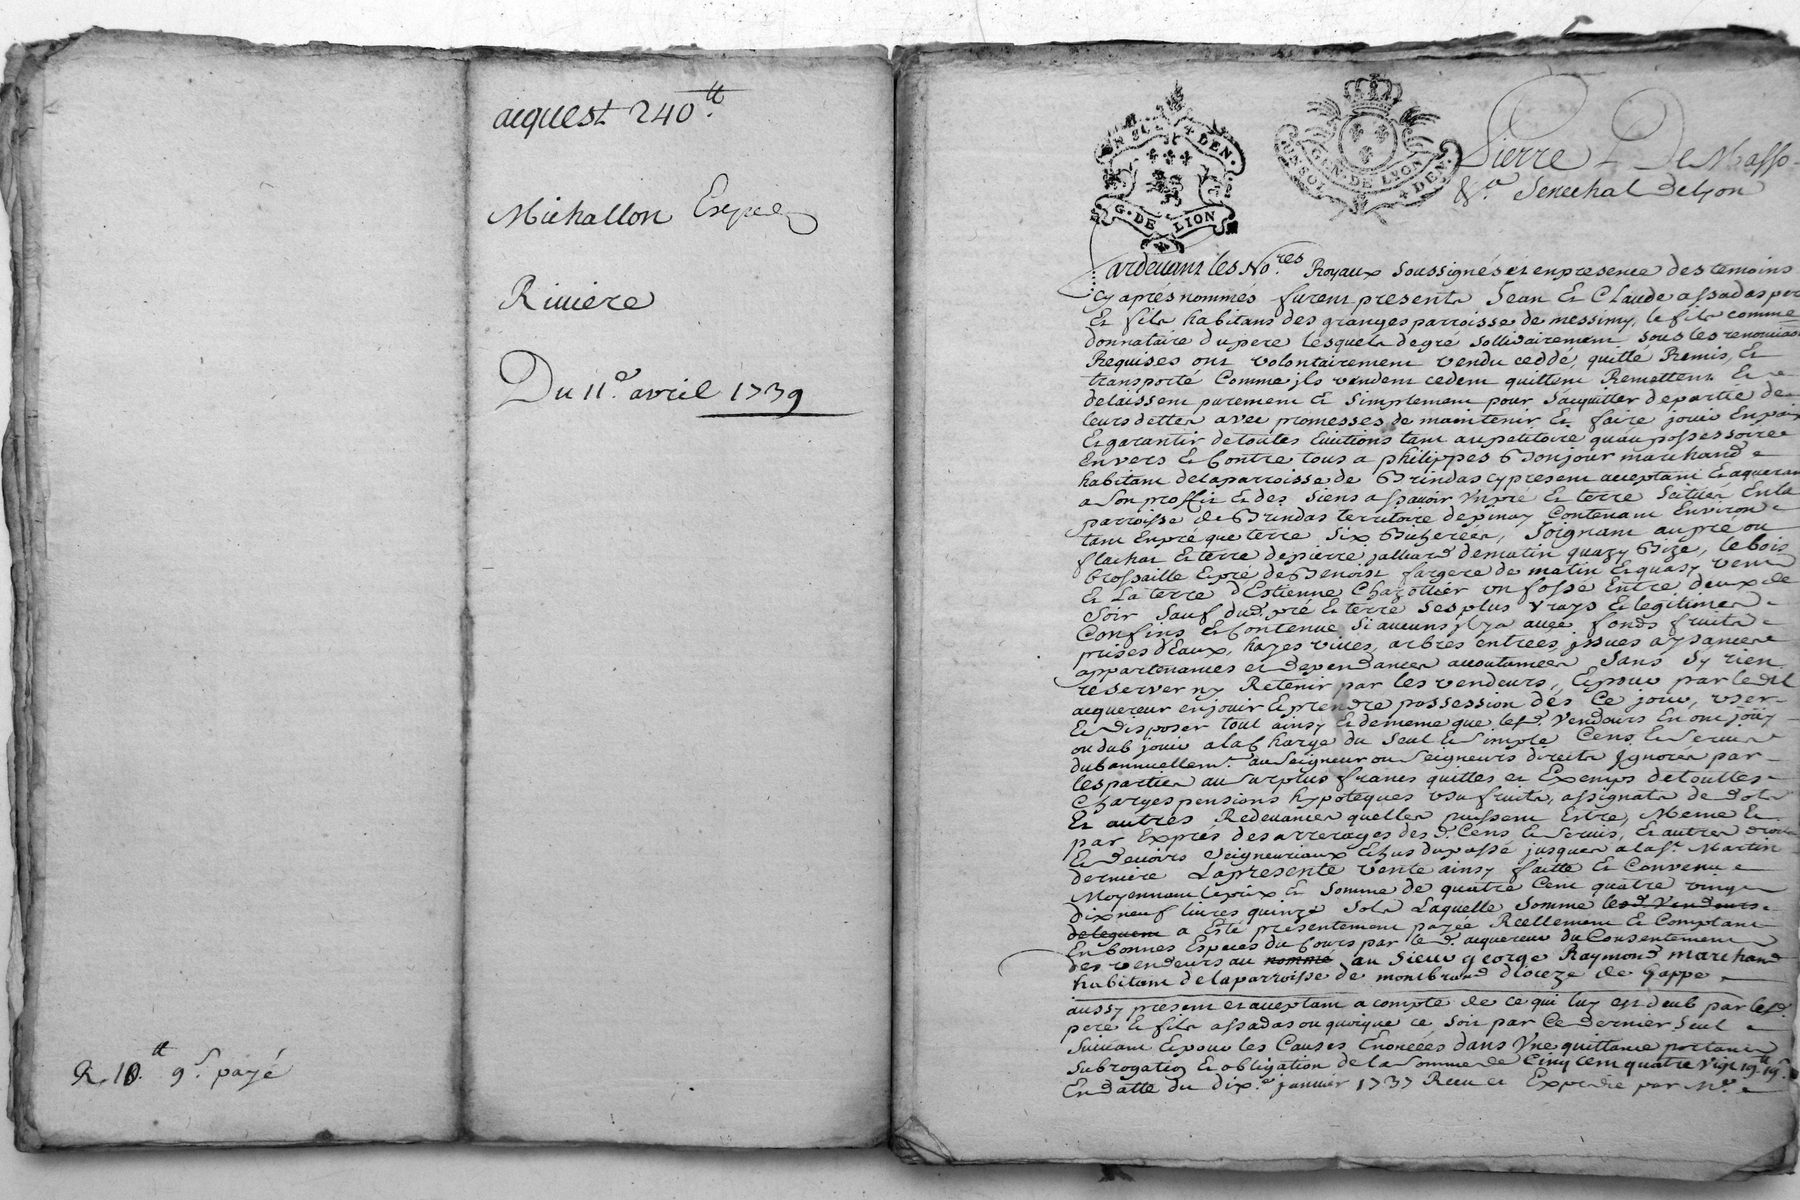 acquest 240.tt
Michallon Expee
Riviere
Du 11e. avril 1739
R. 10.tt 9s. payé
UN SOL 4 DEN.
G. DE LION
GEN. DE LYON
UN SOL 4 DEN.
Pierre De Masso
&a Senechal de Lyon
Pardevant les No.res Royaux soussignés et en presence des temoins
cy aprés nommés furent presents Jean Et Claude assadas pere
Et fils habitans des granges parroisse de messimy, le fils comme
donnataire du pere lesquels de gré sollidairement sous les renonciaons
Requises ont volontairement vendu ceddé, quitté Remis, Et
transporté Comme ils vendent cedent quittent Remettent Et
delaissent purement Et simplement pour s'acquitter de partie de
leurs dettes avec promesses de maintenir Et faire jouir En paix
Et garantir de toutes Evitions tant au petitoire qu'au possessoire
Envers Et Contre tous a philippes Bonjour marchand
habitant de la parroisse de Brindas cy present acceptant Et aquerant
a son proffit Et des siens assavoir Un pré Et terre scitués En la
parroisse de Brindas territoire depinay Contenant Environ
tant En pré que terre six Bicherées, Joignant au pré ou
flachat Et terre de pierre jalliard de matin quazy Bize, le bois
brossaille Et pré de Benoist fargere de matin Et quazy vent
Et La terre d'Estienne Chazottier un fossé Entre deux de
Soir sauf dud. pré Et terre ses plus vrays Et legitimes
Confins Et Contenue si aucuns il y a avec fonds fruits
prises d'Eaux, hayes vives, arbres entrées, issues aysances
appartenances et dependances accoutumées sans s'y rien
reserver ny Retenir par les vendeurs, Et pour par led
acquereur en jouir Et prendre possession dés Ce jour, user
Et disposer tout ainsy Et de meme que lesd. Vendeurs En ont joüy
ou dub jouir a la Charge du Seul Et simple Cens Et Servis
dub annuellemt. au Seigneur ou Seigneurs directs Ignorés par
les parties au surplus francs quittes et Exemps de touttes
Charges pensions hypoteques usufruits, assignats de dots
Et autres Redevances quelles puissent Estre, Meme Et
par Exprés des arrerages desd. Cens Et Servis, Et autres droits
Et devoirs Seigneuriaux Echus du passé jusques a la St. Martin
derniere La presente vente ainsy faitte Et Convenue
Moyennant le prix Et Somme de quatre Cent quatre vingt
dix neuf livres quinze Sols Laquelle Somme lesd. Vendeurs
deleguent a Esté presentement payée Reellement Et Comptant
En bonnes Especes du Cours par le d. acquereur du Consentement
des vendeurs au nommé au Sieur george Raymond marchand
habitant de la parroisse de montbrand dioceze de Gappe
aussy present et acceptant a compte de ce qui luy est deub par lesd.
pere Et fils assadas ou quoique ce soit par Ce dernier seul
Suivant Et pour les Causes Enoncées dans Une quittance portant
Subrogation Et obligation de la Somme de Cinq cent quatre vigt 19tt 19s.
En datte du dixe. janvier 1737 Receu et Expedié par Me.